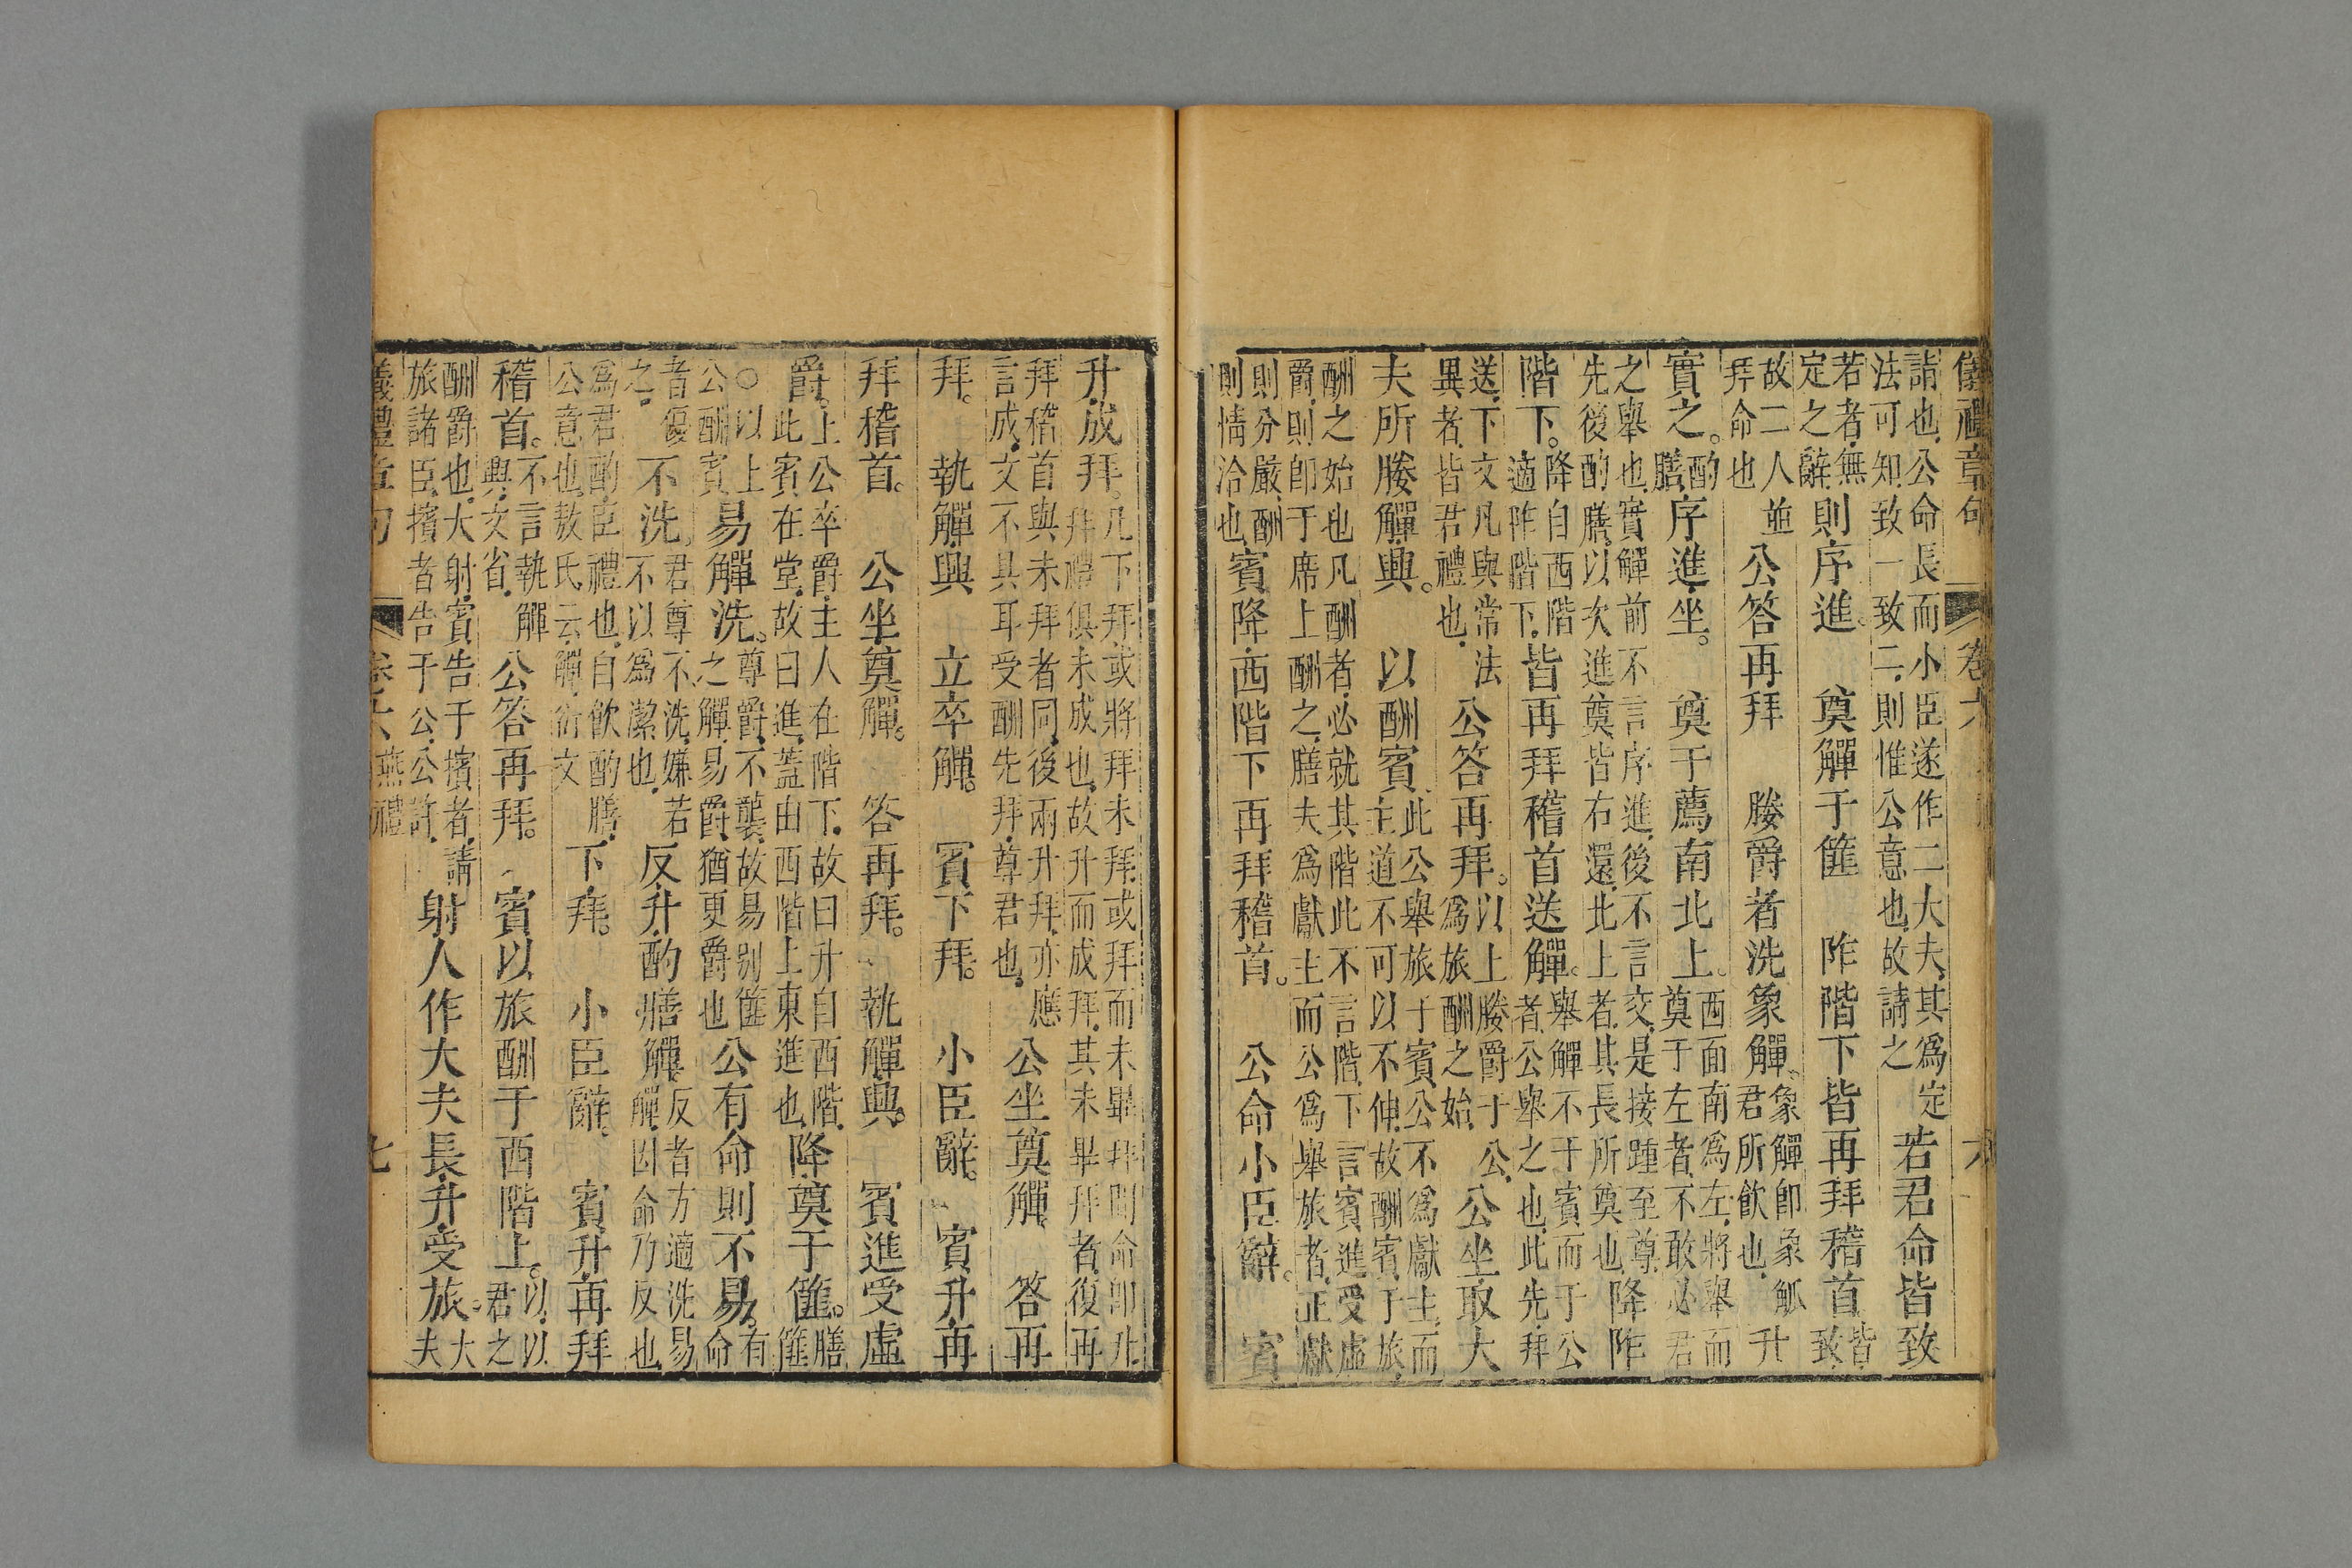 儀禮章句 卷六 六
請也公命長而小臣遂作二大夫其爲定
法可知致一致二則惟公意也故請之
若君命皆致
若者無
定之辭
則序進。 奠觶于篚 阼階下皆再拜稽首
皆
致
故二人並
拜命也
公答再拜 媵爵者洗象觶
象觶卽象觚
君所飲也
升
實之。
酌
膳
序進坐。 奠于薦南北上。
西面南爲左將舉而
奠于左者不敢必君
之舉也實觶前不言序進後不言交是接踵至尊
先後酌膳以次進奠皆右還北上者其長所奠也
降阼
階下。
降自西階
適阼階下
皆再拜稽首送觶。
舉觶不于賓而于公
者公舉之也此先拜
送下文凡與常法
異者皆君禮也
公答再拜。
以上媵爵于公
爲旅酬之始
公坐取大
夫所媵觶興。 以酬賓
此公舉旅于賓公不爲獻主而
主道不可以不伸故酬賓于旅
酬之始也凡酬者必就其階此不言階下言賓進受虛
爵則卽于席上酬之膳夫爲獻主而公爲舉旅者正獻
則分嚴酬
則情洽也
賓降西階下再拜稽首。 公命小臣辭。 賓
升成拜。
凡下拜或將拜未拜或拜而未畢拜聞命卽升
拜禮俱未成也故升而成拜其未畢拜者復再
拜稽首與未拜者同後兩升拜亦應
言成文不具耳受酬先拜尊君也
公坐奠觶 答再
拜。 執觶興 立卒觶。 賓下拜。 小臣辭。 賓升再
拜稽首。 公坐奠觶。 答再拜。 執觶興。 賓進受虛
爵。
上公卒爵主人在階下故曰升自西階
此賓在堂故曰進蓋由西階上東進也
降奠于篚。
膳
篚
○以上
公酬賓
易觶洗。
尊爵不襲故易別篚
之觶易爵猶更爵也
公有命則不易。
有
命
者優
之
不洗。
君尊不洗嫌若
不以爲潔也
反升酌膳觶
反者方適洗易
觶因命乃反也
爲君酌臣禮也自飲酌膳
公意也敖氏云觶衍文
下拜。 小臣辭 賓升再拜
稽首。
不言執觶
興文省
公答再拜。 賓以旅酬于西階上。
以以
君之
酬爵也大射賓告于擯者請
旅諸臣擯者告于公公許
射人作大夫長升受旅。
大
夫
儀禮章句 卷六 燕禮 七